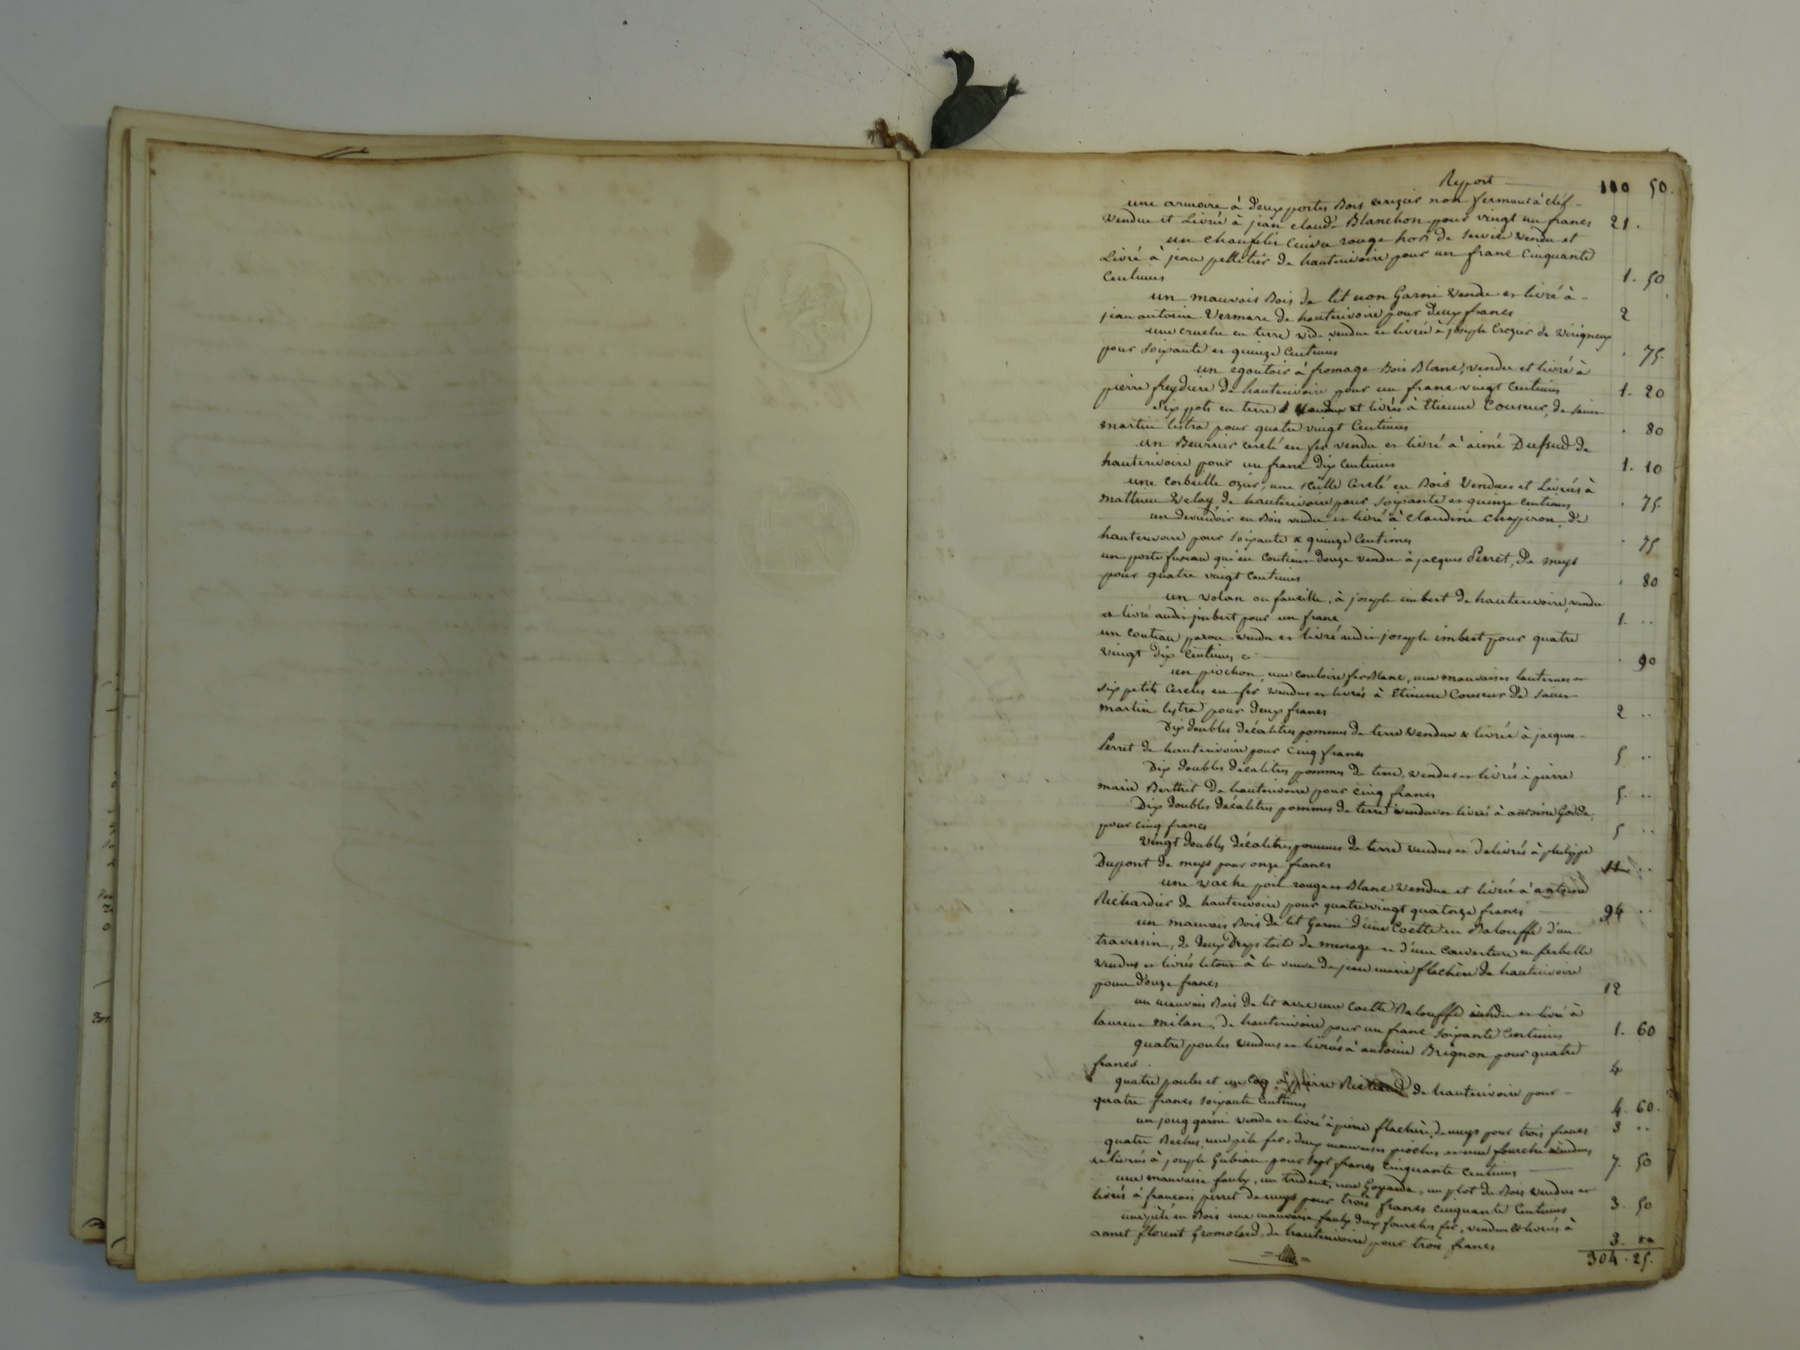 Report 110 50.
une armoire à deux portes Bois cerizier non fermant à clef
vendue et Livré à jean claude Blanchon pour vingt un francs 21 .
un chaufelit Cuivre rouge hors de service vendu et
Livré à jean pelletier de hauterivoire pour un franc Cinquante
Centimes 1. 50
un mauvais Bois de lit non Garni vendu et livré à
jean antoine Vermare de hauterivoire pour deux francs 2
une cruche en terre vide vendue et livrée à joseph Crozier de Virigneux
pour soixante et quinze Centimes . 75.
un egoutoir à fromage Bois Blanc, vendu et livré à
pierre freydiere de hauterivoire pour un franc vingt Centimes 1. 20
Six pots en terre vendus et livrés à Etienne Couseur, de saint
martin lestra pour quatre vingt Centimes . 80
un Beurrier cerclé en fer vendu et livré à aimé Dufsud de
hauterivoire pour un franc dix Centimes 1. 10
une corbeille ozier, une seille Cerclé en Bois Vendues et Livrées à
mathieu Velay de hauterivoire pour soixante et quinze Centimes . 75.
un devidoir en Bois vendu et livré à claudine chapiron, de
hauterivoire pour soixante & quinze Centimes . 75
un porte fuseau qui en contient douze vendu à jacques Perret, de meys
pour quatre vingt Centimes . 80
un volan ou faucille, à joseph imbert de hauterivoire, vendu
et livré audit imbert pour un franc 1. ..
un couteau parou vendu et livré audit joseph imbert pour quatre
vingt dix Centimes c . 90
un piochon, une couloire fer Blanc, une mauvaises lanternes et
six petits Cercles en fer vendus et livrés à Etienne Couseur de saint
martin lestra pour deux francs 2 ..
Dix doubles décalitres pommes de terre vendus & livrés à jacques
Perret de hauterivoire pour cinq francs 5 ..
Dix doubles décalitres pommes de terre, vendus et livrés à pierre
marie Berthet de hauterivoire pour cinq francs 5. ..
Dix doubles décalitres pommes de terre vendus et livrés à antoine
pour cinq francs 5 ..
Vingt doubles décalitres pommes de terre vendus et delivrés à philippe
Dupont de meys pour onze francs 11 ..
une vache poil rouge et Blanc vendue et livrée à antoine
Richardier de hauterivoire pour quatre vingt quatorze francs 94 ..
un mauvais Bois de lit Garni d'une Coette en Balouffe d'un
traversin, de deux Draps toile de menage et d'une couverture en
vendus et livrés le tout à la veuve de jean marie flachère de hauterivoire
pour douze francs 12
un mauvais Bois de lit avec une Coette Balouffe vendu et livré à
laurent milan, de hauterivoire pour un franc soixante Centimes 1. 60
quatre poules vendues et livrées à antoine Brignon pour quatre
francs. 4
quatre poules et un Coq à pierre de hauterivoire pour
quatre francs soixante Centimes 4. 60.
un joug garni vendu et livré à pierre flachère, de meys pour trois francs 3 ..
quatre Beches, une pèle fer, deux mauvaises pioches et une fourche vendues
et livrées à joseph Gubian pour sept francs Cinquante Centimes 7. 50
une mauvaise faulx, un trident, une Goyarde, un plot de Bois vendus et
livrés à francois perret de meys pour trois francs cinquante Centimes 3. 50
une pèle en Bois une mauvaise faulx deux fourches fer, vendues & livrées à
annet florent Gromolard, de hauterivoire pour trois francs 3. ..
304. 25.